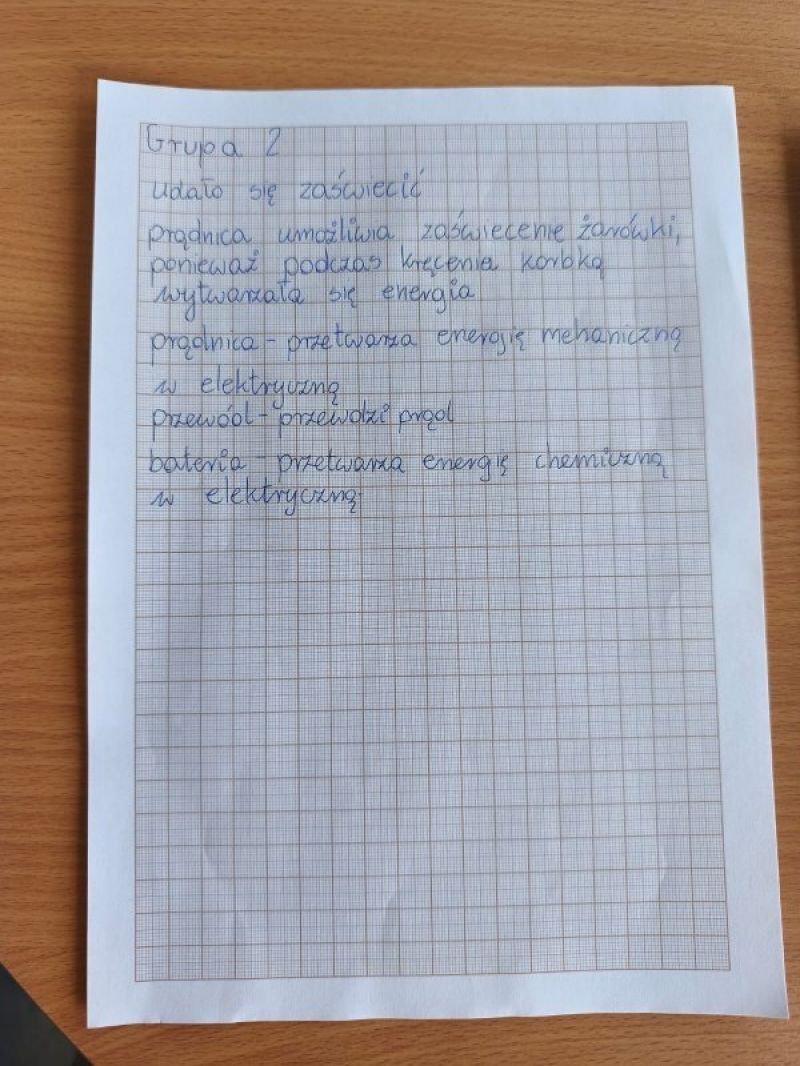 Grupa 2
udało się zaświecić
prądnica umożliwia zaświecenie żarówki,
ponieważ podczas kręcenia korbką
wytwarzała się energia
prądnica - przetwarza energię mehaniczną
w elektryczną
przewód - przewodzi prąd
bateria - przetwarza energię chemiczną
w elektryczną